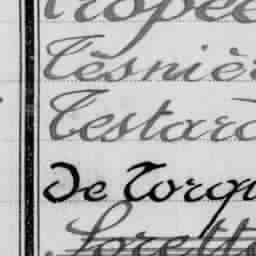 Tropée
Tesnièr
Testard
De Torqu
Lorette